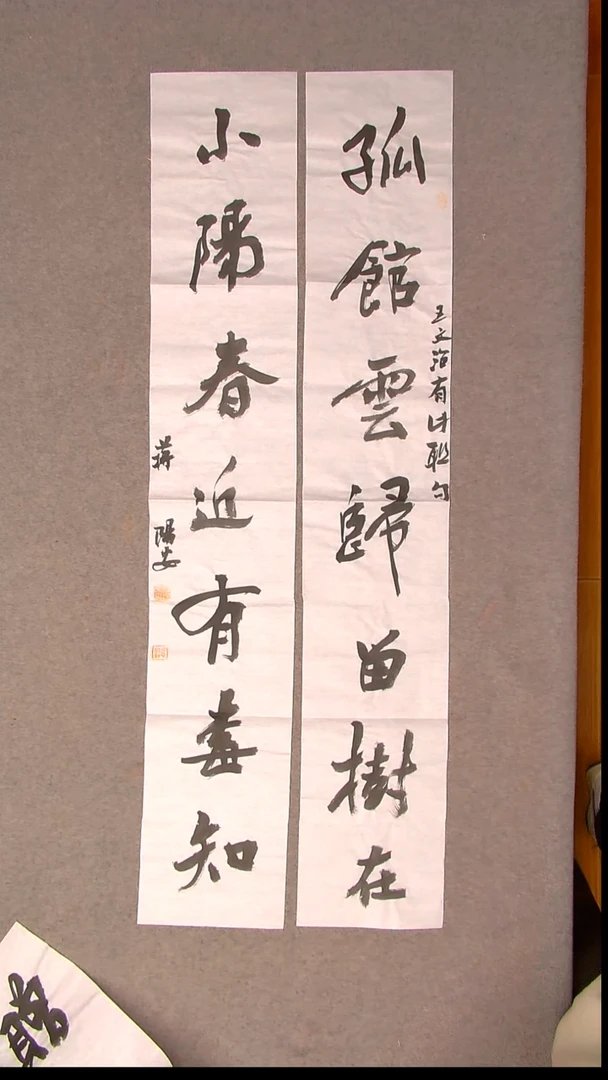 孤館雲歸留樹在
王文治有此聯句
小陽春近有臺知
蔣陽安